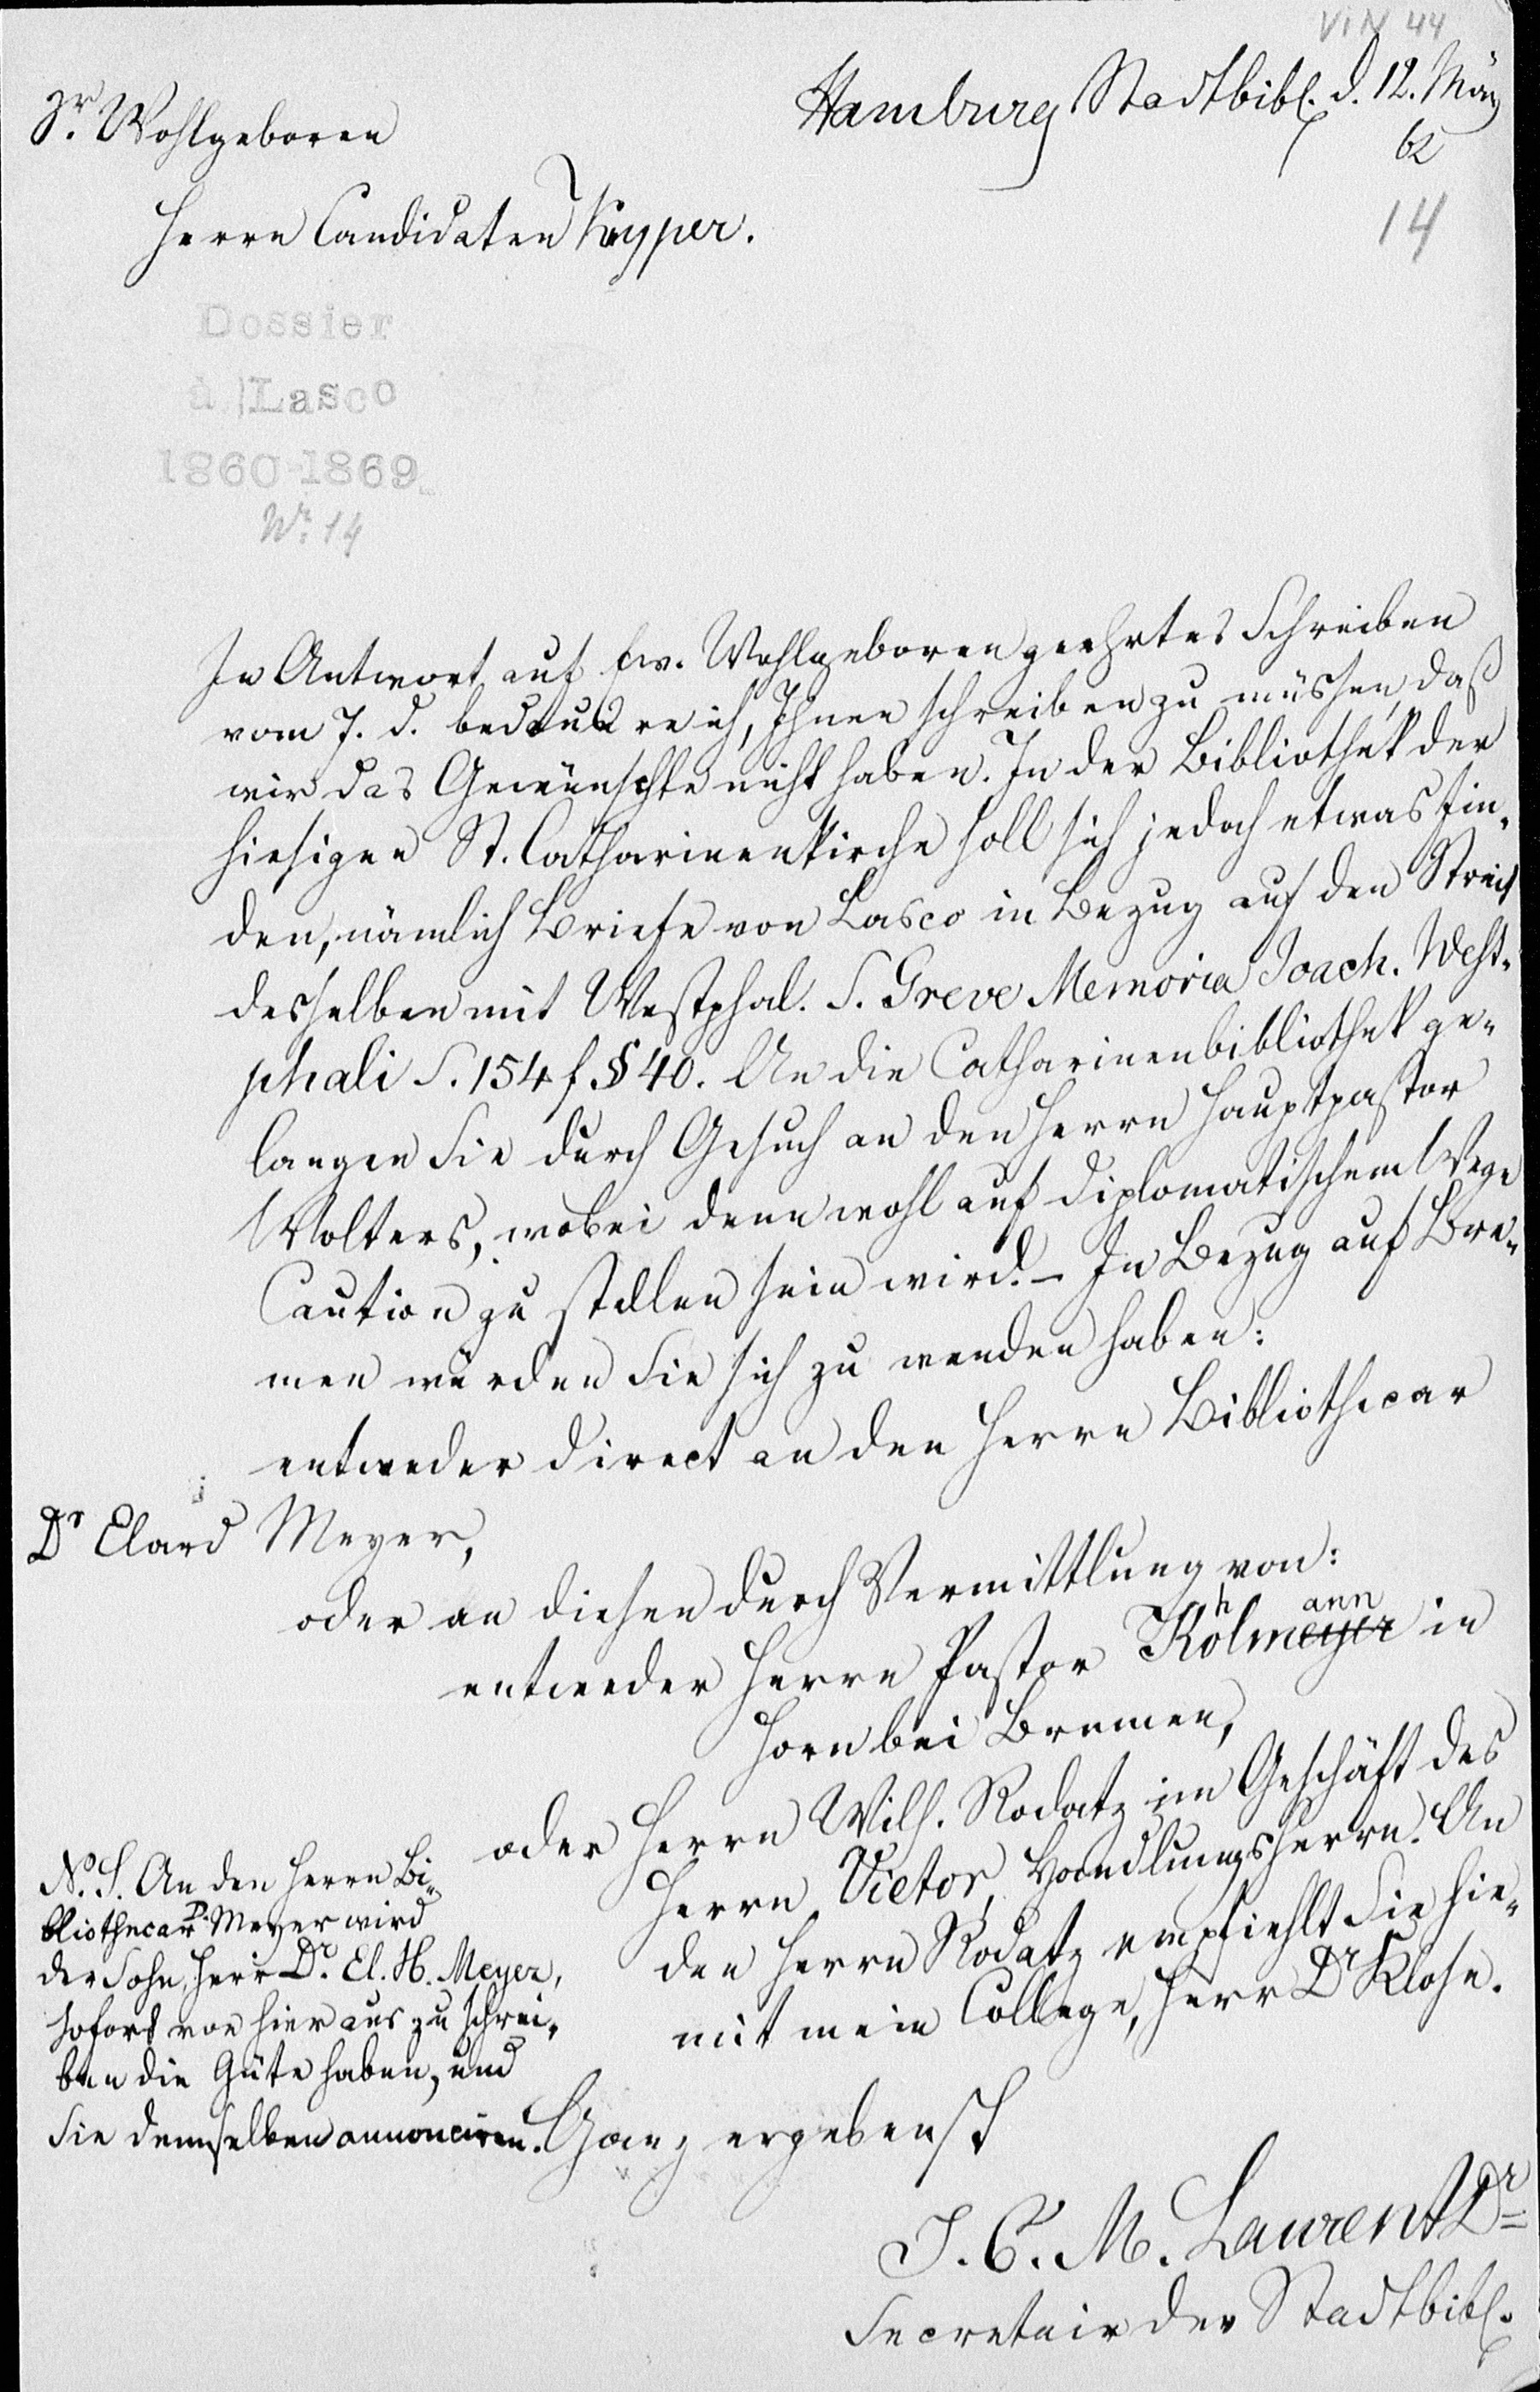 VIN 44
Hamburg Stadtbibl. d. 12. März
62
14
Sr. Wohlgeboren
Herrn Candidaten Kuyper.
Dossier
à Lasco
1860-1869
No. 14
In Antwort auf Ew. Wohlgeboren geehrtes Schreiben
vom 7. d. bedaure ich, Ihnen schreiben zu müssen, daß
wir das Gewünschte nicht haben. In der Bibliothek der
hiesigen St. Catharinenkirche soll sich jedoch etwas fin-
den, nämlich Briefe von Lasco in Bezug auf den Streit
desselben mit Westphal. S. Greve Memoria Joach. West-
phali S. 154 f § 40. An die Catharinenbibliothek ge-
langen Sie durch Gesuch an den Herrn Hauptpastor
Wolters, wobei denn wohl auf diplomatischem Wege
Caution zu stellen sein wird. – In Bezug auf Bre-
men würden Sie sich zu wenden haben:
entweder direct an den Herrn Bibliothecar
Dr Elard Meyer,
oder an diesen durch Vermittlung von:
entweder Herrn Pastor Kohlmeyer ann in
Horn bei Bremen,
oder Herrn Wilh. Rodatz im Geschäft des
Herrn Vietor, Handlungsherrn. An
den Herrn Rodatz empfiehlt Sie hie-
mit mein College, Herr Dr Klose.
N. S. An den Herrn Bi-
bliothecar D. Meyer wird
der Sohn, Herr Dr. El. H. Meyer,
sofort von hier aus zu schrei-
ben die Güte haben, und
Sie demselben annonciren.
Ganz ergebenst
J. C. M. Laurent Dr
Secretair der Stadtbibl.